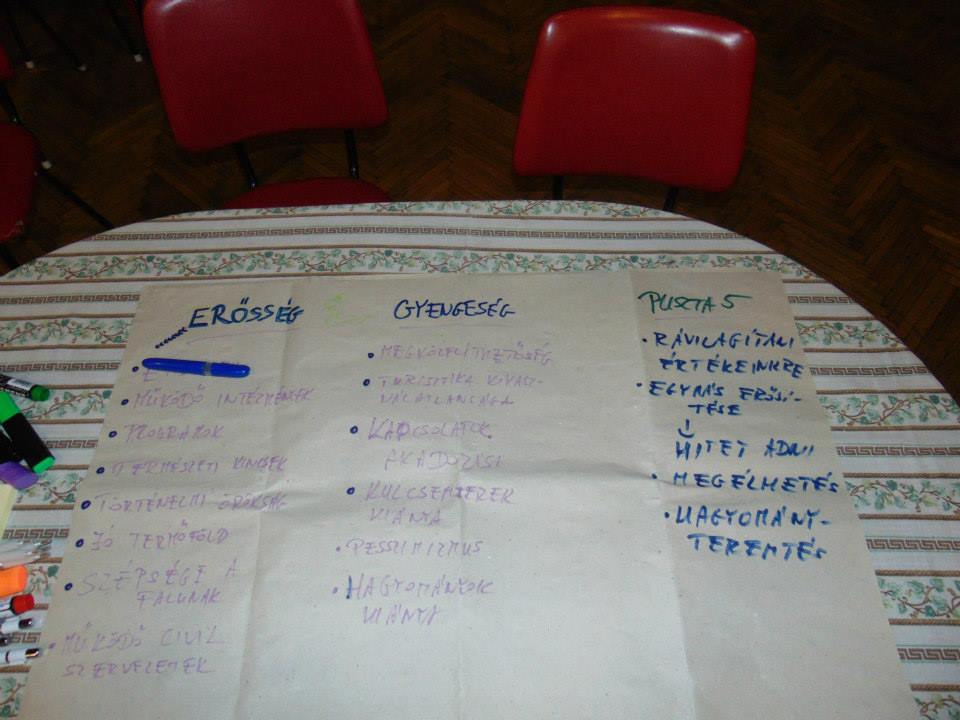 ERŐSSÉG
MŰKÖDŐ INTÉZMÉNYEK
PROGRAMOK
TERMÉSZETI KINCSEK
TÖRTÉNELMI ÖRÖKSÉG
JÓ TERMŐFÖLD
SZÉPSÉGE A
FALUNAK
MŰKÖDŐ CIVIL
SZERVEZETEK
GYENGESÉG
MEGKÖZELÍTHETŐSÉG
TURISZTIKA KIHASZ-
NÁLATLANSÁGA
KAPCSOLATOK
AKADOZÁSA
KULCSEMBEREK
HIÁNYA
PESSZIMIZMUS
HAGYOMÁNYOK
HIÁNYA
PUSZTA 5
RÁVILAGÍTANI
ÉRTÉKEINKRE
EGYMÁS ERŐSÍ-
TÉSE
HITET ADNI
MEGÉLHETÉS
HAGYOMÁNY-
TEREMTÉS